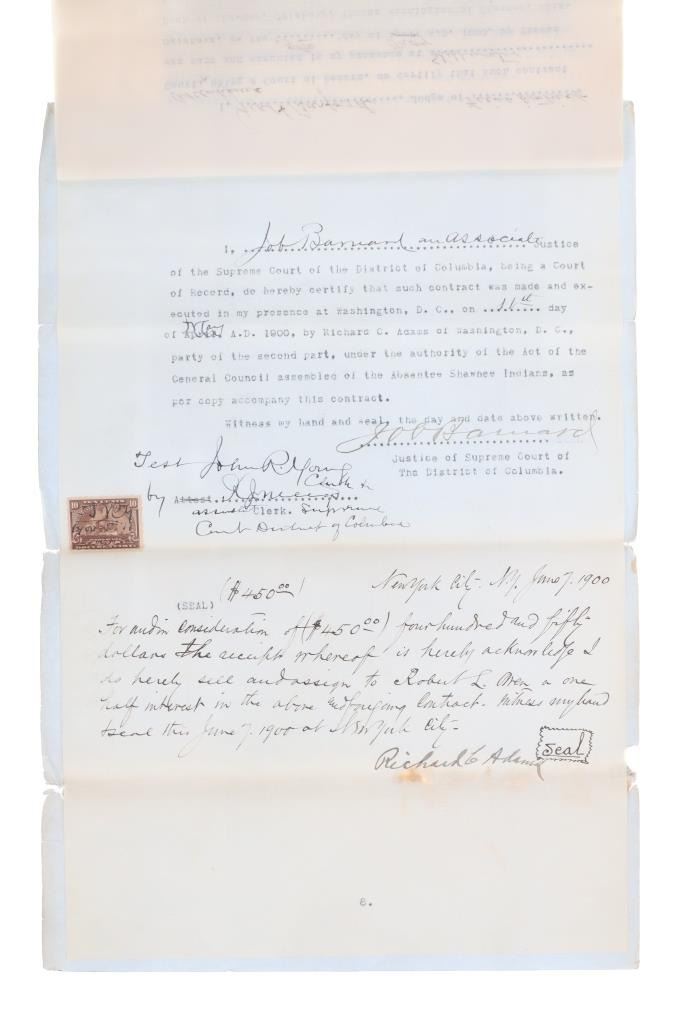 I, Job Barnard an Associate Justice
of the Supreme Court of the District of Columbia, being a Court
of Record, do hereby certify that such contract was made and ex-
ecuted in my presence at Washington, D. C., on ..16th.... day
of May A.D. 1900, by Richard C. Adams of Washington, D. C.,
party of the second part, under the authority of the Act of the
General Council assembled of the Absentee Shawnee Indians, as
per copy accompany this contract.
Witness my hand and seal, the day and date above written.
Job Barnard
Justice of Supreme Court of
The District of Columbia.
Test John R. Young
Clerk &
by Attest
assistant Clerk. Supreme
Court District of Columbia
10 10
($450.00)
New York City. N.Y. June 7. 1900
(SEAL)
For and in consideration of ($450.00) four hundred and fifty
dollars the receipt whereof is hereby acknowledge I
do hereby sell and assign to Robert L. Owen a one
half interest in the above and foregoing contract. Witness my hand
& seal this June 7. 1900 at New York City-
Richard C Adams
Seal
6.